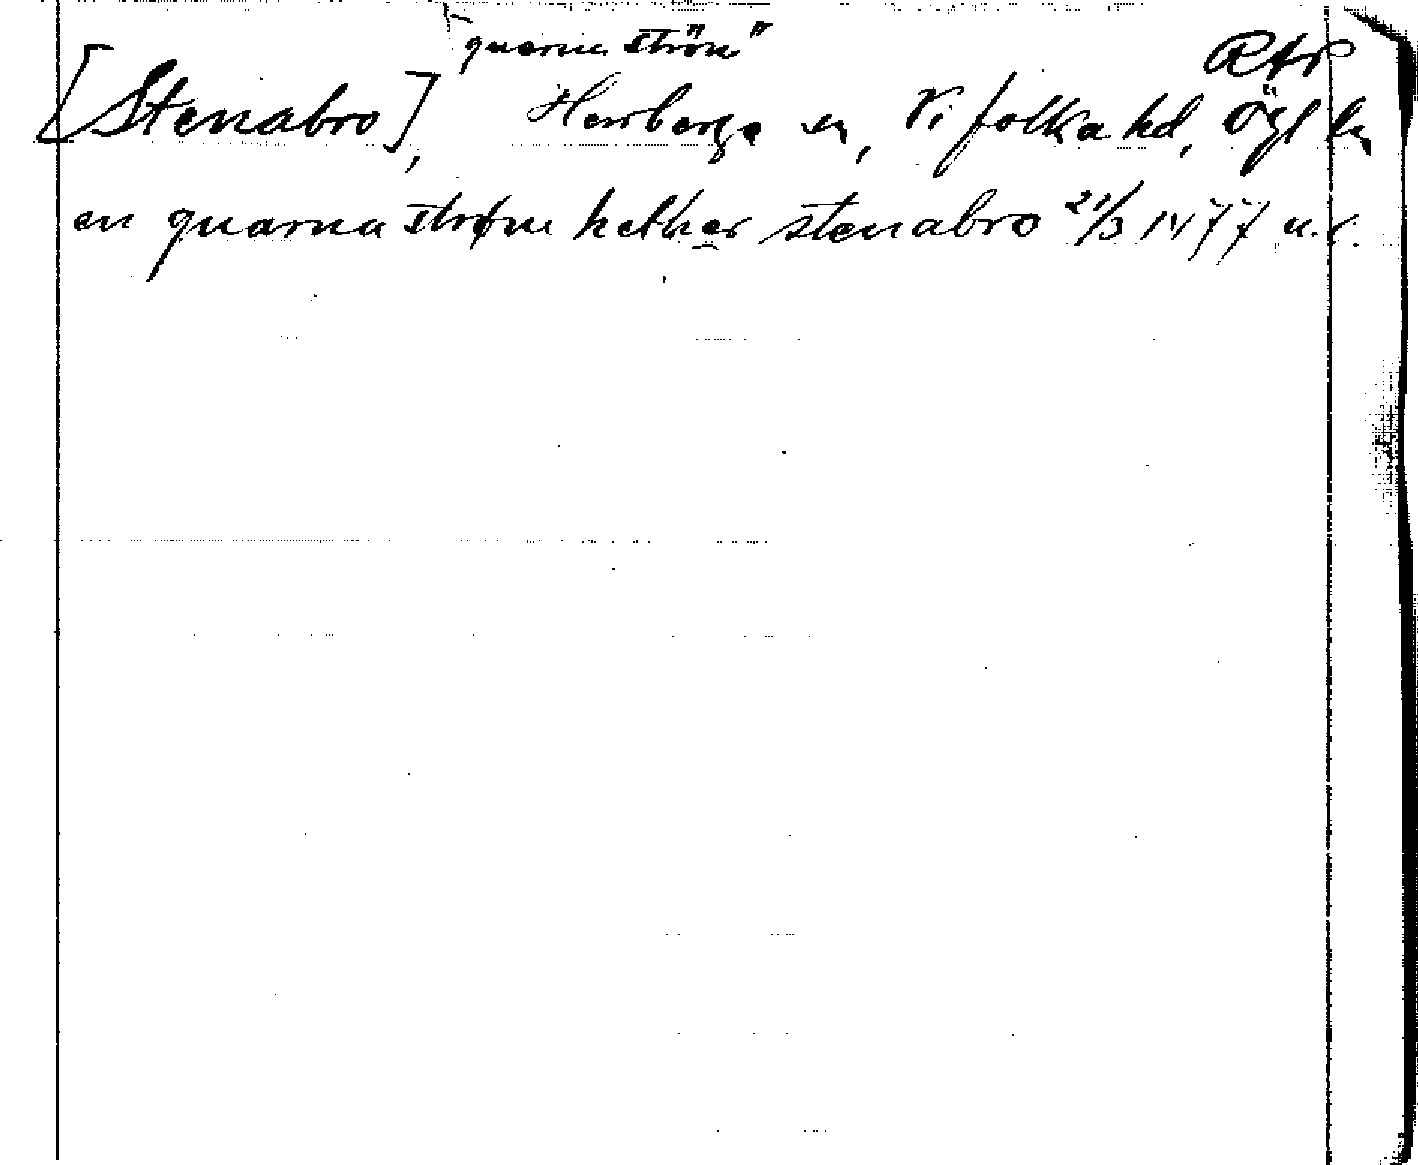 "quarna ström"
Rtr
[Stenabro], Herrberga sn, Vifolka hd, Ögl ln
en quarna strøm hether stenabro 21/3 1477 u. r.